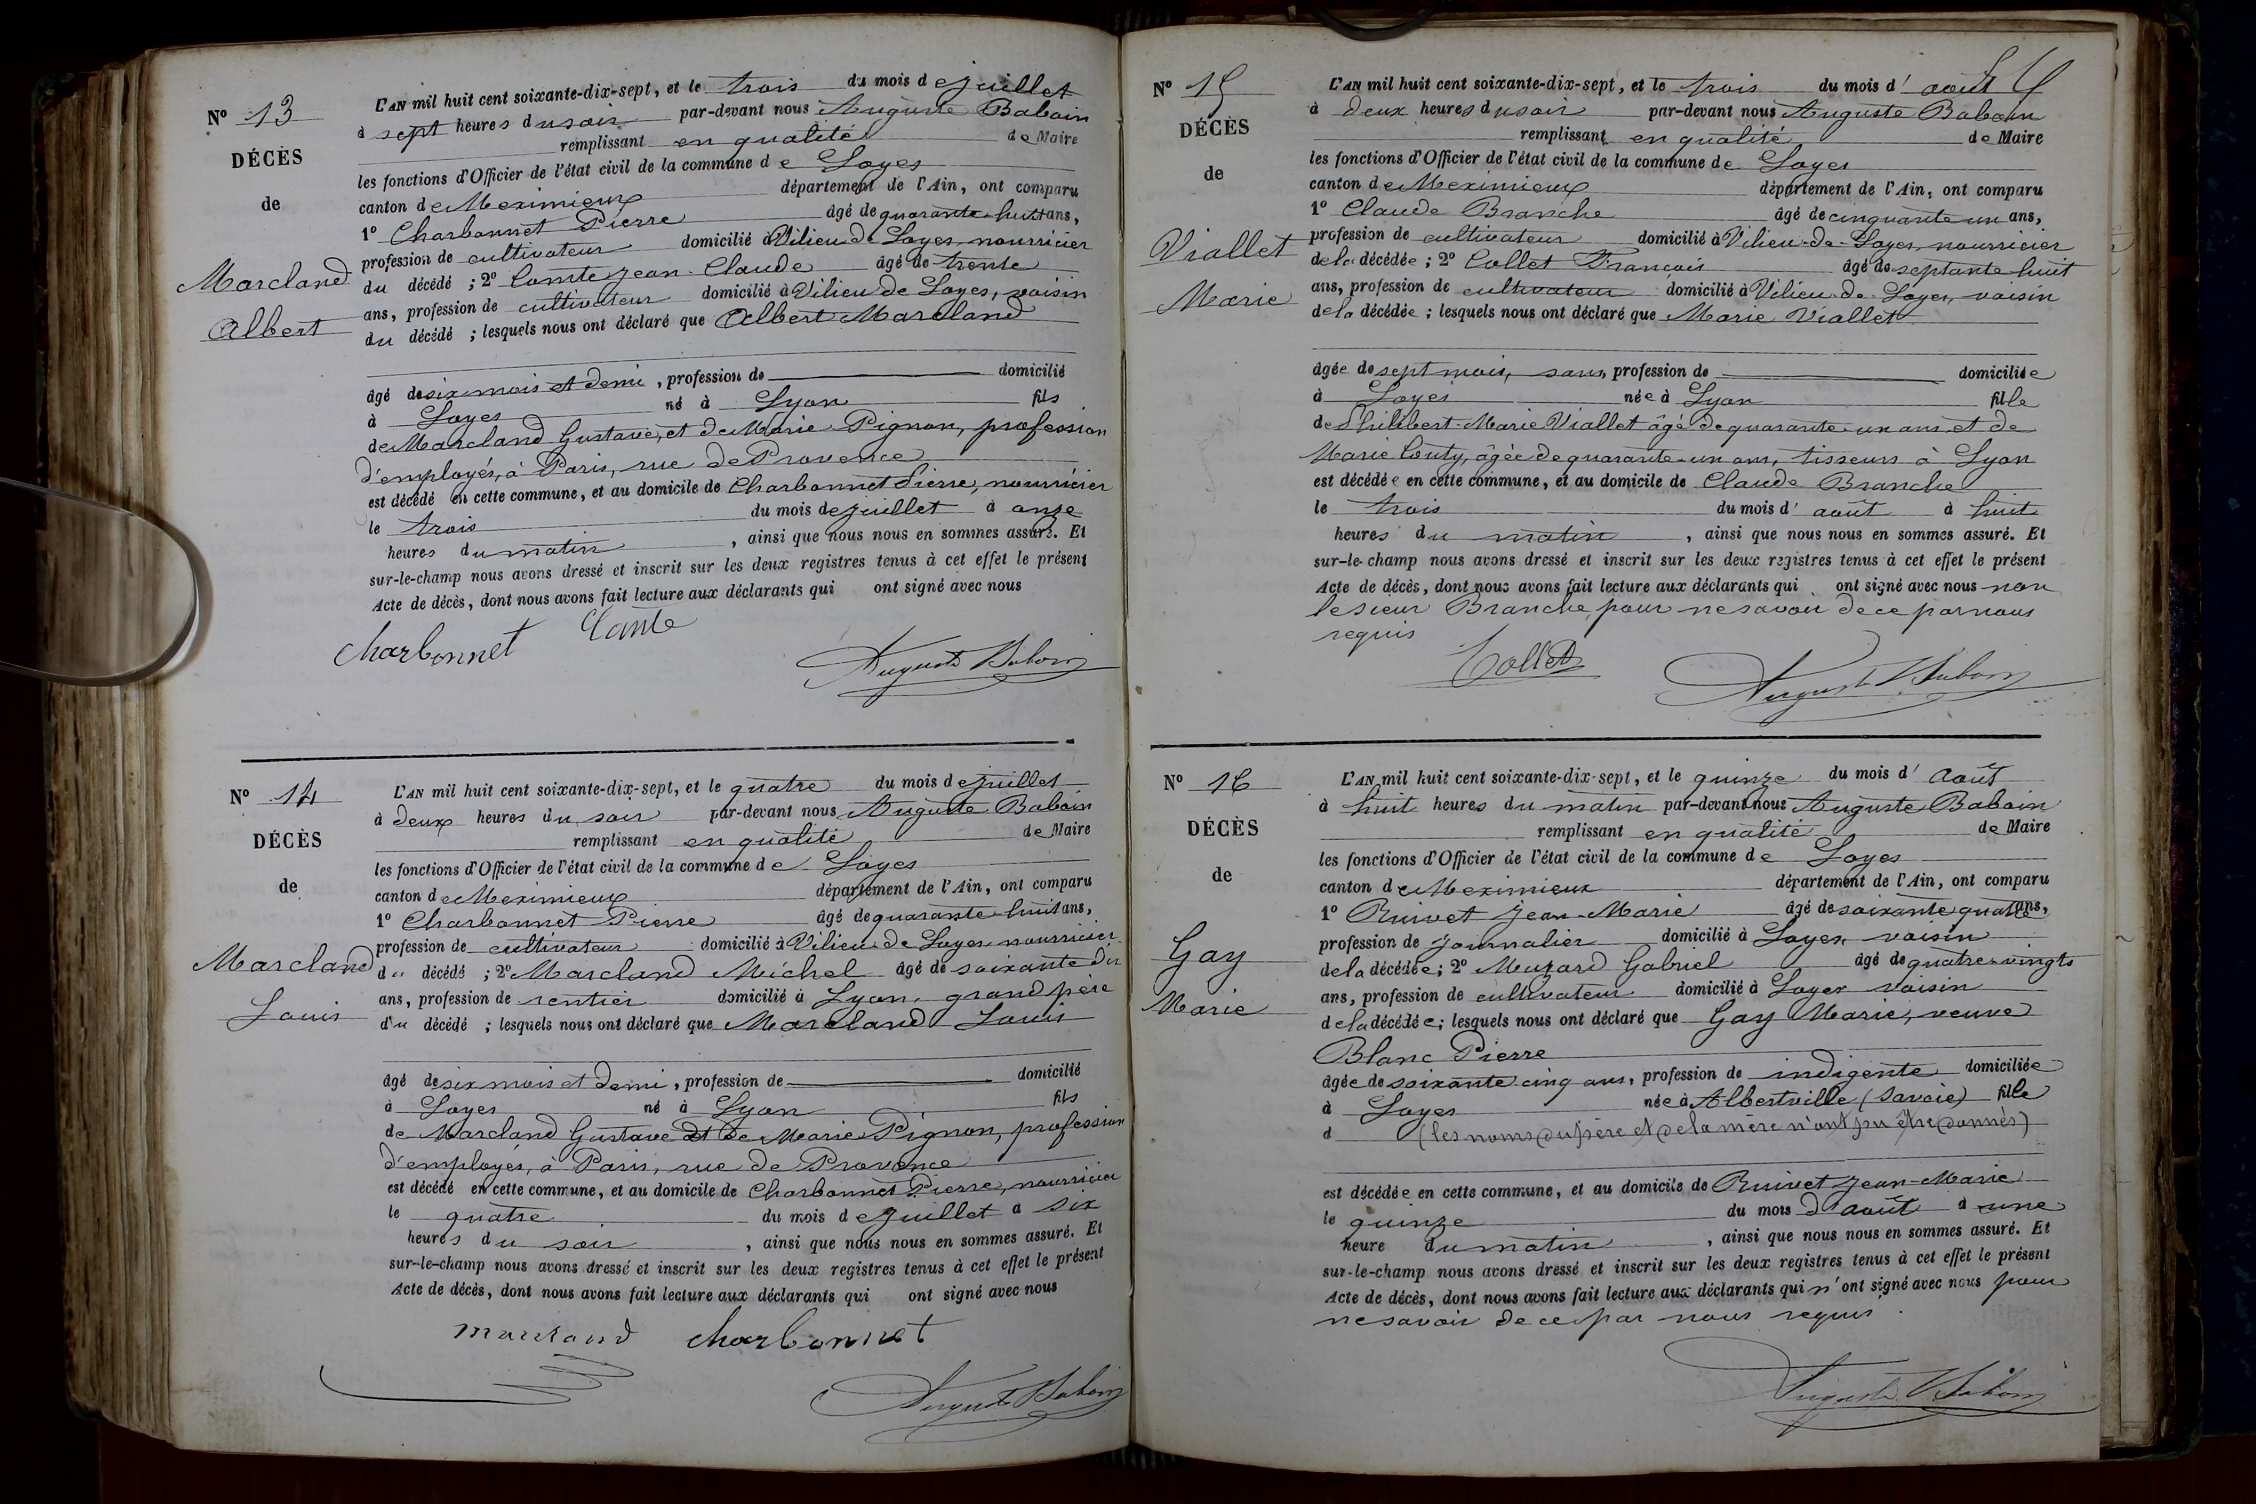 N° 13
DÉCÈS
de
Marcland
Albert
L'AN mil huit cent soixante-dix-sept, et le trois du mois de juillet
à sept heures du soir par-devant nous Auguste Baboin
remplissant en qualité de Maire
les fonctions d'Officier de l'état civil de la commune de Loyes
canton de Meximieux département de l'Ain, ont comparu
1° Charbonnet Pierre âgé de quarante-huit ans,
profession de cultivateur domicilié à Vilieu de Loyes, nourricier
du décédé ; 2° Comte Jean-Claude âgé de trente
ans, profession de cultivateur domicilié à Vilieu de Loyes, voisin
du décédé ; lesquels nous ont déclaré que Albert Marcland
âgé de six mois et demi, profession de domicilié
à Loyes né à Lyon fils
de Marcland Gustave, et de Marie Pignon, profession
d'employés, à Paris, rue de Provence
est décédé en cette commune, et au domicile de Charbonnet Pierre, nourricier
le trois du mois de juillet à onze
heures du matin, ainsi que nous nous en sommes assuré. Et
sur-le-champ nous avons dressé et inscrit sur les deux registres tenus à cet effet le présent
Acte de décès, dont nous avons fait lecture aux déclarants qui ont signé avec nous
Charbonnet Comte
Auguste Baboin
N° 14
DÉCÈS
de
Marcland
Louis
L'AN mil huit cent soixante-dix-sept, et le quatre du mois de juillet
à deux heures du soir par-devant nous Auguste Baboin
remplissant en qualité de Maire
les fonctions d'Officier de l'état civil de la commune de Loyes
canton de Meximieux département de l'Ain, ont comparu
1° Charbonnet Pierre âgé de quarante-huit ans,
profession de cultivateur domicilié à Vilieu de Loyes nourricier
du décédé ; 2° Marcland Michel âgé de soixante dix
ans, profession de rentier domicilié à Lyon, grand père
du décédé ; lesquels nous ont déclaré que Marcland Louis
âgé de six mois et demi, profession de domicilié
à Loyes né à Lyon fils
de Marcland Gustave et de Marie Pignon, profession
d'employés, à Paris, rue de Provence
est décédé en cette commune, et au domicile de Charbonnet Pierre, nourricier
le quatre du mois de juillet à six
heures du soir, ainsi que nous nous en sommes assuré. Et
sur-le-champ nous avons dressé et inscrit sur les deux registres tenus à cet effet le présent
Acte de décès, dont nous avons fait lecture aux déclarants qui ont signé avec nous
Marcland Charbonnet
Auguste Baboin
N° 15
DÉCÈS
de
Viallet
Marie
L'AN mil huit cent soixante-dix-sept, et le trois du mois d'août
à deux heures du soir par-devant nous Auguste Baboin
remplissant en qualité de Maire
les fonctions d'Officier de l'état civil de la commune de Loyes
canton de Meximieux département de l'Ain, ont comparu
1° Claude Branche âgé de cinquante un ans,
profession de cultivateur domicilié à Vilieu-de-Loyes, nourricier
de la décédée ; 2° Collet François âgé de septante huit
ans, profession de cultivateur domicilié à Vilieu-de-Loyes, voisin
de la décédée ; lesquels nous ont déclaré que Marie Viallet
âgée de sept mois, sans, profession de domiciliée
à Loyes née à Lyon fille
de Philibert-Marie Viallet âgé de quarante-un ans et de
Marie Couty, âgée de quarante-un ans, tisseurs à Lyon
est décédée en cette commune, et au domicile de Claude Branche
le trois du mois d'août à huit
heures du matin, ainsi que nous nous en sommes assuré. Et
sur-le-champ nous avons dressé et inscrit sur les deux registres tenus à cet effet le présent
Acte de décès, dont nous avons fait lecture aux déclarants qui ont signé avec nous non
le sieur Branche, pour ne savoir de ce par nous
requis
Collet
Auguste Baboin
N° 16
DÉCÈS
de
Gay
Marie
L'AN mil huit cent soixante-dix-sept, et le quinze du mois d'août
à huit heures du matin par-devant nous Auguste Baboin
remplissant en qualité de Maire
les fonctions d'Officier de l'état civil de la commune de Loyes
canton de Meximieux département de l'Ain, ont comparu
1° Ruivet Jean-Marie âgé de soixante quatre ans,
profession de journalier domicilié à Loyes, voisin
de la décédée ; 2° Muzard Gabriel âgé de quatre-vingts
ans, profession de cultivateur domicilié à Loyes voisin
de la décédée ; lesquels nous ont déclaré que Gay Marie, veuve
Blanc Pierre
âgée de soixante-cinq ans, profession de indigente domiciliée
à Loyes née à Albertville (Savoie) fille
d (les noms du père et de la mère n'ont pu être donnés)
est décédée en cette commune, et au domicile de Ruivet Jean-Marie
le quinze du mois d'août à une
heure du matin, ainsi que nous nous en sommes assuré. Et
sur-le-champ nous avons dressé et inscrit sur les deux registres tenus à cet effet le présent
Acte de décès, dont nous avons fait lecture aux déclarants qui n'ont signé avec nous pour
ne savoir de ce par nous requis.
Auguste Baboin